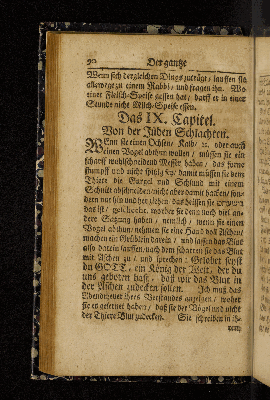 90 Der gantze
Wenn sich dergleichen Dings zuträgt, lauffen sie
allerwege zu einem Rabbi, und fragen ihn. Wo
einer Fleisch-Speise gessen hat, darff er in einer
Stunde nicht Milch-Speise essen.
Das IX. Capitel.
Von der Jüden Schlachten.
Wenn sie einen Ochsen, Kalb, ꝛc. oder auch
einen Vogel abthun wollen, müssen sie ein
scharff wohlschneidend Messer haben, das forne
stumpff und nicht spitzig sey, damit müssen sie dem
Thiere die Gurgel und Schlund mit einem
Schnitt abschneiden, nicht aber damit hacken, sondern
nur hin und her ziehen, das heissen sie
das ist, geschochten, worbey sie denn auch viel andere
Satzung haben, nemlich, wenn sie einen
Vogel abthun, nehmen sie eine Hand voll Aschen,
machen ein Grüblein darein, und lassen das Blut
also darein lauffen, nach dem scharren sie das Blut
mit Aschen zu, und sprechen: Gelobet seyst
du GOTT, ein König der Welt, der du
uns geboten hast, daß wir das Blut in
der Aschen zudecken sollen. Ich muß das
Abentheuer ihres Verstandes anzeigen, woher
sie es gelernet haben, daß sie der Vögel und nicht
der Thiere Blut zudecken. Sie schreiben in ih-
rem